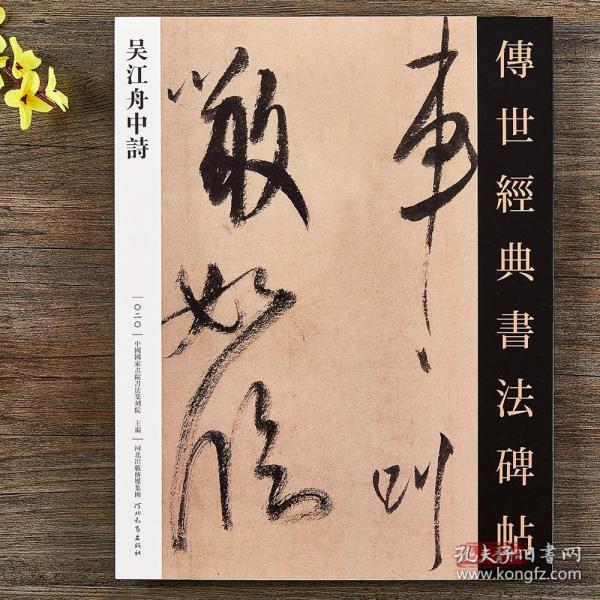 傳世經典書法碑帖
車叫
噉如臨
吴江舟中詩
〇二〇
中國國家畫院書法篆刻院 主編
河北出版傳媒集團
河北教育出版社
孔夫子旧书网
www.kongfz.com